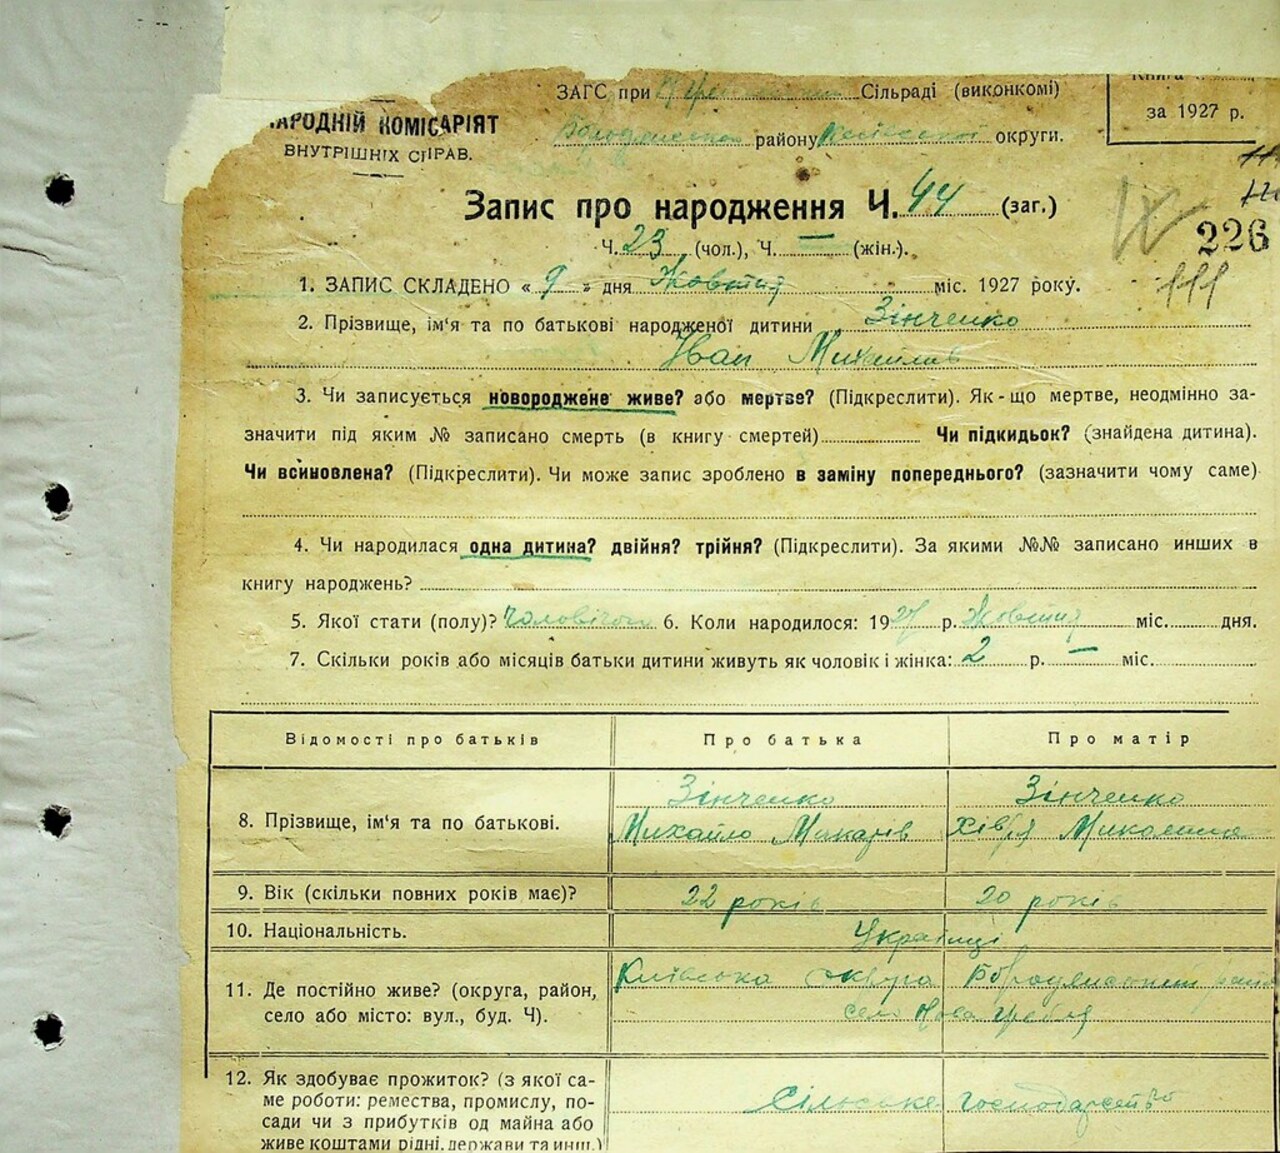 Книга ч.
ЗАГС при Сільраді (виконкомі)
за 1927 р.
НАРОДНІЙ КОМІСАРІЯТ
ВНУТРІШНІХ СПРАВ.
району Київської округи.
Запис про народження Ч. 44 (заг.)
226
Ч. 23 (чол.), Ч. — (жін.).
111
1. ЗАПИС СКЛАДЕНО « 9 » дня Жовтня міс. 1927 року.
2. Прізвище, ім'я та по батькові народженої дитини Зінченко
Іван Михайлів
3. Чи записується новороджене живе? або мертве? (Підкреслити). Як-що мертве, неодмінно за-
значити під яким № записано смерть (в книгу смертей) Чи підкидьок? (знайдена дитина).
Чи всиновлена? (Підкреслити). Чи може запис зроблено в заміну попереднього? (зазначити чому саме)
4. Чи народилася одна дитина? двійня? трійня? (Підкреслити). За якими №№ записано инших в
книгу народжень?
5. Якої стати (полу)? 6. Коли народилося: 1927 р. Жовтня міс. дня.
7. Скільки років або місяців батьки дитини живуть як чоловік і жінка: 2 р. — міс.
Відомості про батьків Про батька Про матір
Зінченко Зінченко
8. Прізвище, ім'я та по батькові. Михайло Макарів Хівря
9. Вік (скільки повних років має)? 22 років 20 років
10. Національність. Українці
Київська округа
11. Де постійно живе? (округа, район,
село
село або місто: вул., буд. Ч).
12. Як здобуває прожиток? (з якої са-
ме роботи: ремества, промислу, по- Сільське господарство
сади чи з прибутків од майна або
живе коштами рідні, держави та инш.)